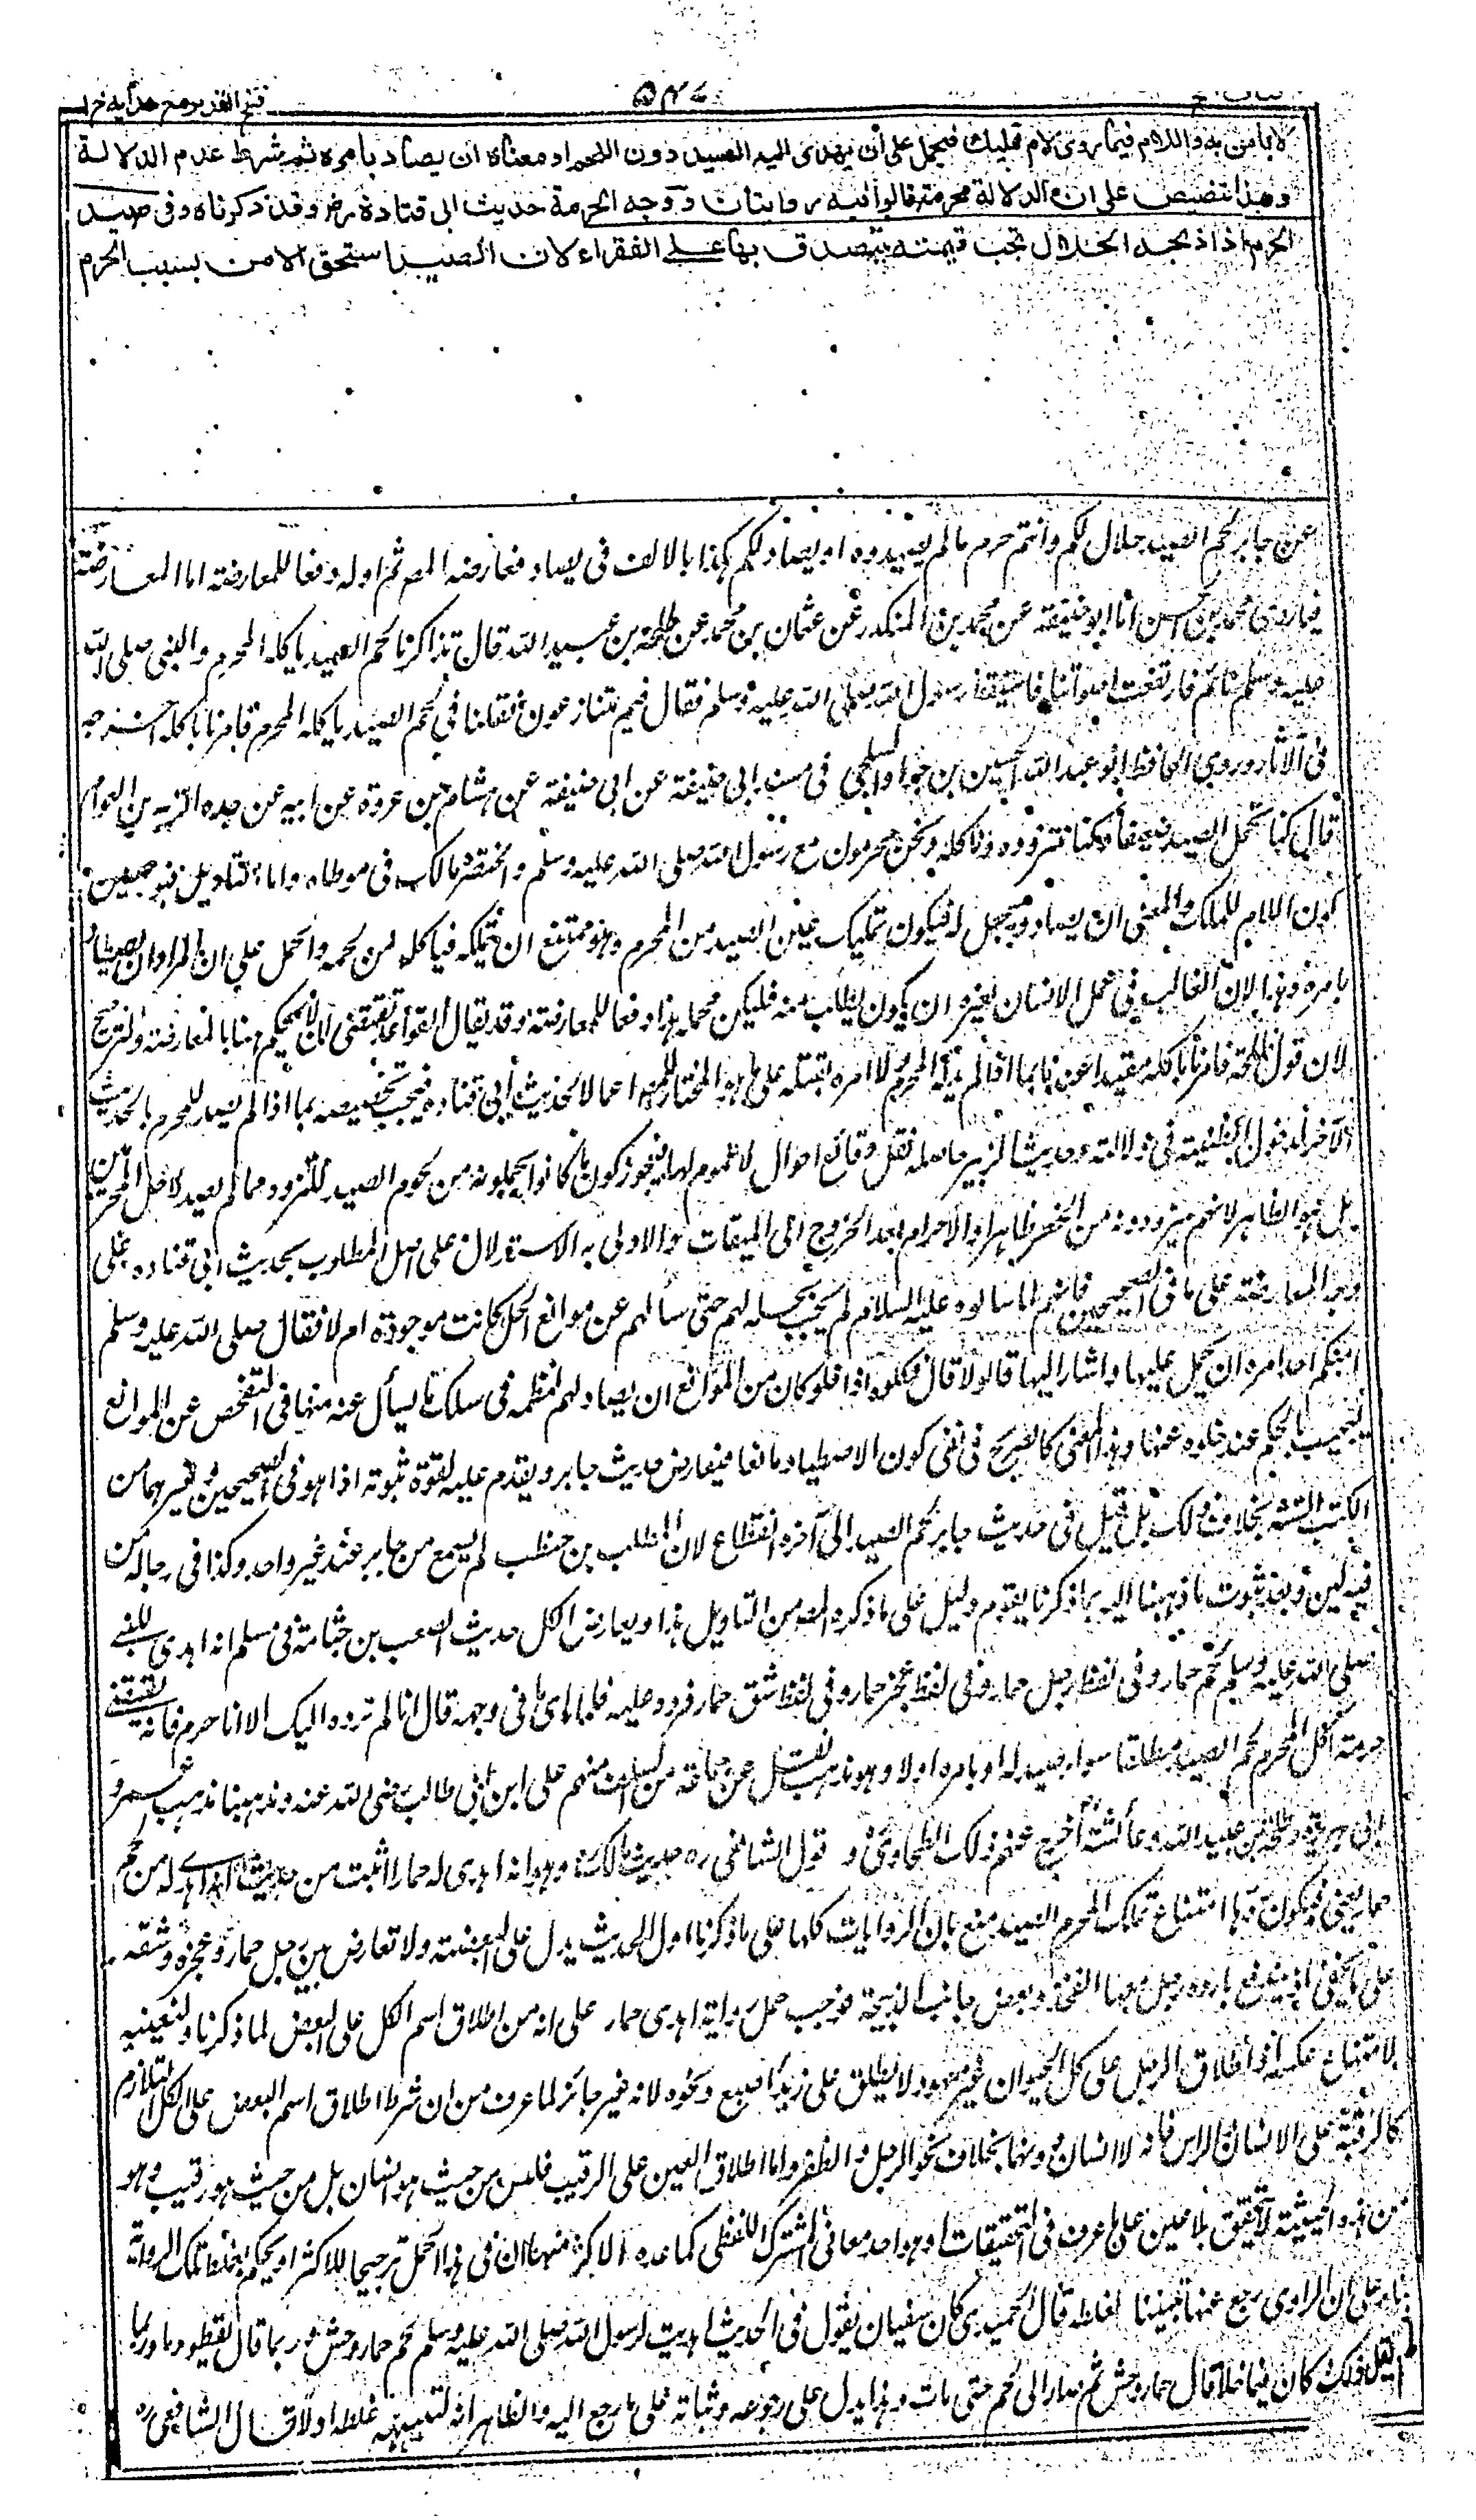 فتح القدير مع هدايه ج ١
٥٤٧
لا بأس به واللام فيما روى لام تمليك فيحمل على أن يهدى اليه الصيد دون اللحم او معناه ان يصاد بامره ثم شرط عدم الدلالة
وهذا تنصيص على ان الدلالة محرمة قالوا فيه روايتان ووجه الحرمة حديث ابى قتادة رض وقد ذكرناه وفى صيد
الحرم اذا ذبحه الحلال تجب قيمته يتصدق بها على الفقراء لان الصيد استحق الامن بسبب الحرم
عن جابر لحم الصيد حلال لكم وانتم حرم ما لم تصيدوه او يصاد لكم هكذا بالالف فى يصاد فعارضه المصـ ثم اوله دفعا للمعارضة اما المعارضة
فبما روى محمد بن الحسن انا ابو حنيفة عن محمد بن المنكدر عن عثمان بن محمد عن طلحة بن عبيد الله قال تذاكرنا لحم الصيد ياكله المحرم والنبى صلى الله
عليه وسلم نائم فارتفعت اصواتنا فاستيقظ رسول الله صلى الله عليه وسلم فقال فيم تتنازعون فقلنا فى لحم الصيد ياكله المحرم فامرنا باكله اخرجه
فى الآثار وروى الحافظ ابو عبد الله الحسين بن خسرو البلخى فى مسند ابى حنيفة عن ابى حنيفة عن هشام بن عروة عن ابيه عن جده الزبير بن العوام
قال كنا نحمل الصيد صفيفا وكنا نتزوده وناكله ونحن محرمون مع رسول الله صلى الله عليه وسلم واختصره مالك فى موطاه واما التاويل فبوجهين
كون اللام للملك والمعنى ان يصاد ويجعل له فيكون تمليك عين الصيد من المحرم وهو ممتنع ان يتملكه فياكل من لحمه والحمل على ان المراد ان يصاد
بامره وهذا لان الغالب فى عمل الانسان لغيره ان يكون بطلب منه فليكن محمله هذا دفعا للمعارضة وقد يقال القواعد تقتضى ان لا يحكم هنا بالمعارضة والترجيح
لان قول طلحة فامرنا باكله مقيد عندنا بما اذا لم يدله المحرم ولا امره بقتله على ما هو المختار للمصـ اعمالا لحديث أبى قتادة فيجب تخصيصه بما اذا لم يصد للمحرم بالحديث
الآخر لدخول الظنية فى دلالته وحديث الزبير حاصله نقل وقائع احوال لا عموم لها فيجوز كون ما كانوا يحملونه من لحوم الصيد للتزود مما لم يصد لاجل المحرمين
بل هو الظاهر لانهم يتزودونه من الحضر ظاهرا والاحرام بعد الخروج الى الميقات فالاولى به الاستدلال على اصل المطلوب بحديث ابى قتادة على
وجه المعارضة على ما فى الصحيحين فانهم لما سألوه عليه السلام لم يجب بحله لهم حتى سألهم عن موانع الحل اكانت موجودة ام لا فقال صلى الله عليه وسلم
امنكم احد امره ان يحمل عليها واشار اليها قالوا لا قال فكلوه اذا فلو كان من الموانع ان يصاد لهم لنظمه فى سلك ما يسأل عنه منها فى التفحص عن الموانع
ليجيب بالحكم عند خلوه عنها وهذا المعنى كالصريح فى نفى كون الاصطياد مانعا فيعارض حديث جابر ويقدم عليه لقوة ثبوته اذا هو فى الصحيحين وغيرهما من
الكتب الستة بخلاف ذلك بل قيل فى حديث جابر لحم الصيد الى آخره انقطاع لان المطلب بن حنطب لم يسمع من جابر عند غير واحد وكذا فى رجاله من
فيه لين وبعد ثبوت ما ذهبنا اليه بما ذكرنا يقوم دليل على ما ذكره المصـ من التاويل هذا ويعارض الكل حديث الصعب بن جثامة فى مسلم انه اهدى للنبى
صلى الله عليه وسلم لحم حمار وفى لفظ رجل حمار وفى لفظ عجز حمار وفى لفظ شق حمار فرده عليه فلما راى ما فى وجهه قال انا لم نرده اليك الا انا حرم فانه يقتضى
حرمة اكل المحرم لحم الصيد مطلقا سواء صيد له او بامره او لا وهو مذهب نقل عن جماعة من السلف منهم على ابن ابى طالب رضى الله عنه ومذهبنا مذهب عمر و
ابى هريرة وطلحة بن عبيد الله وعائشة اخرج عنهم ذلك الطحاوى و قول الشافعى ره حديث مالك وهو انه اهدى له حمارا اثبت من حديث انه اهدى له من لحم
حمار يعنى فيكون ردها امتناع تملك المحرم الصيد منع بان الروايات كلها على ما ذكرنا اول الحديث يدل على البعضية ولا تعارض بين رجل حمار وعجزه وشقه
على ما يخفى اذ يندفع بارادة رجل معها الفخذ وبعض جانب الذبيحة فوجب حمل رواية اهدى حمار على انه من اطلاق اسم الكل على البعض لما ذكرنا ولتعينه
لامتناع عكسه اذ اطلاق الرجل على كل الحيوان غير معهود لا يطلق على زيد اصبع ونحوه لانه غير جائز لما عرف من ان شرط اطلاق اسم البعض على الكل التلازم
كالرقبة على الانسان والراس فانه لا انسان دونها بخلاف نحو الرجل والظفر واما اطلاق العين على الرقيب فليس من حيث هو انسان بل من حيث هو رقيب وهو
من هذه الحيثية لا يتحقق بلا عين على ما عرف فى التحقيقات او هو احد معانى المشترك اللفظى كما عده الاكثر منها ان فى هذا الحمل ترجيحا للاكثر او يحكم بغلط تلك الرواية
بناء على ان الراوى رجع عنها تبيينا لغلطه قال الحميدى كان سفيان يقول فى الحديث اهديت لرسول الله صلى الله عليه وسلم لحم حمار وحش وربما قال يقطر دما وربما
لم يقل ذلك كان فيما خلا قال حمار وحش ثم صار الى لحم حتى مات وهذا يدل على رجوعه وثباته على ما رجع اليه والظاهر انه لتبيينه غلطه اولا قال الشافعى ره